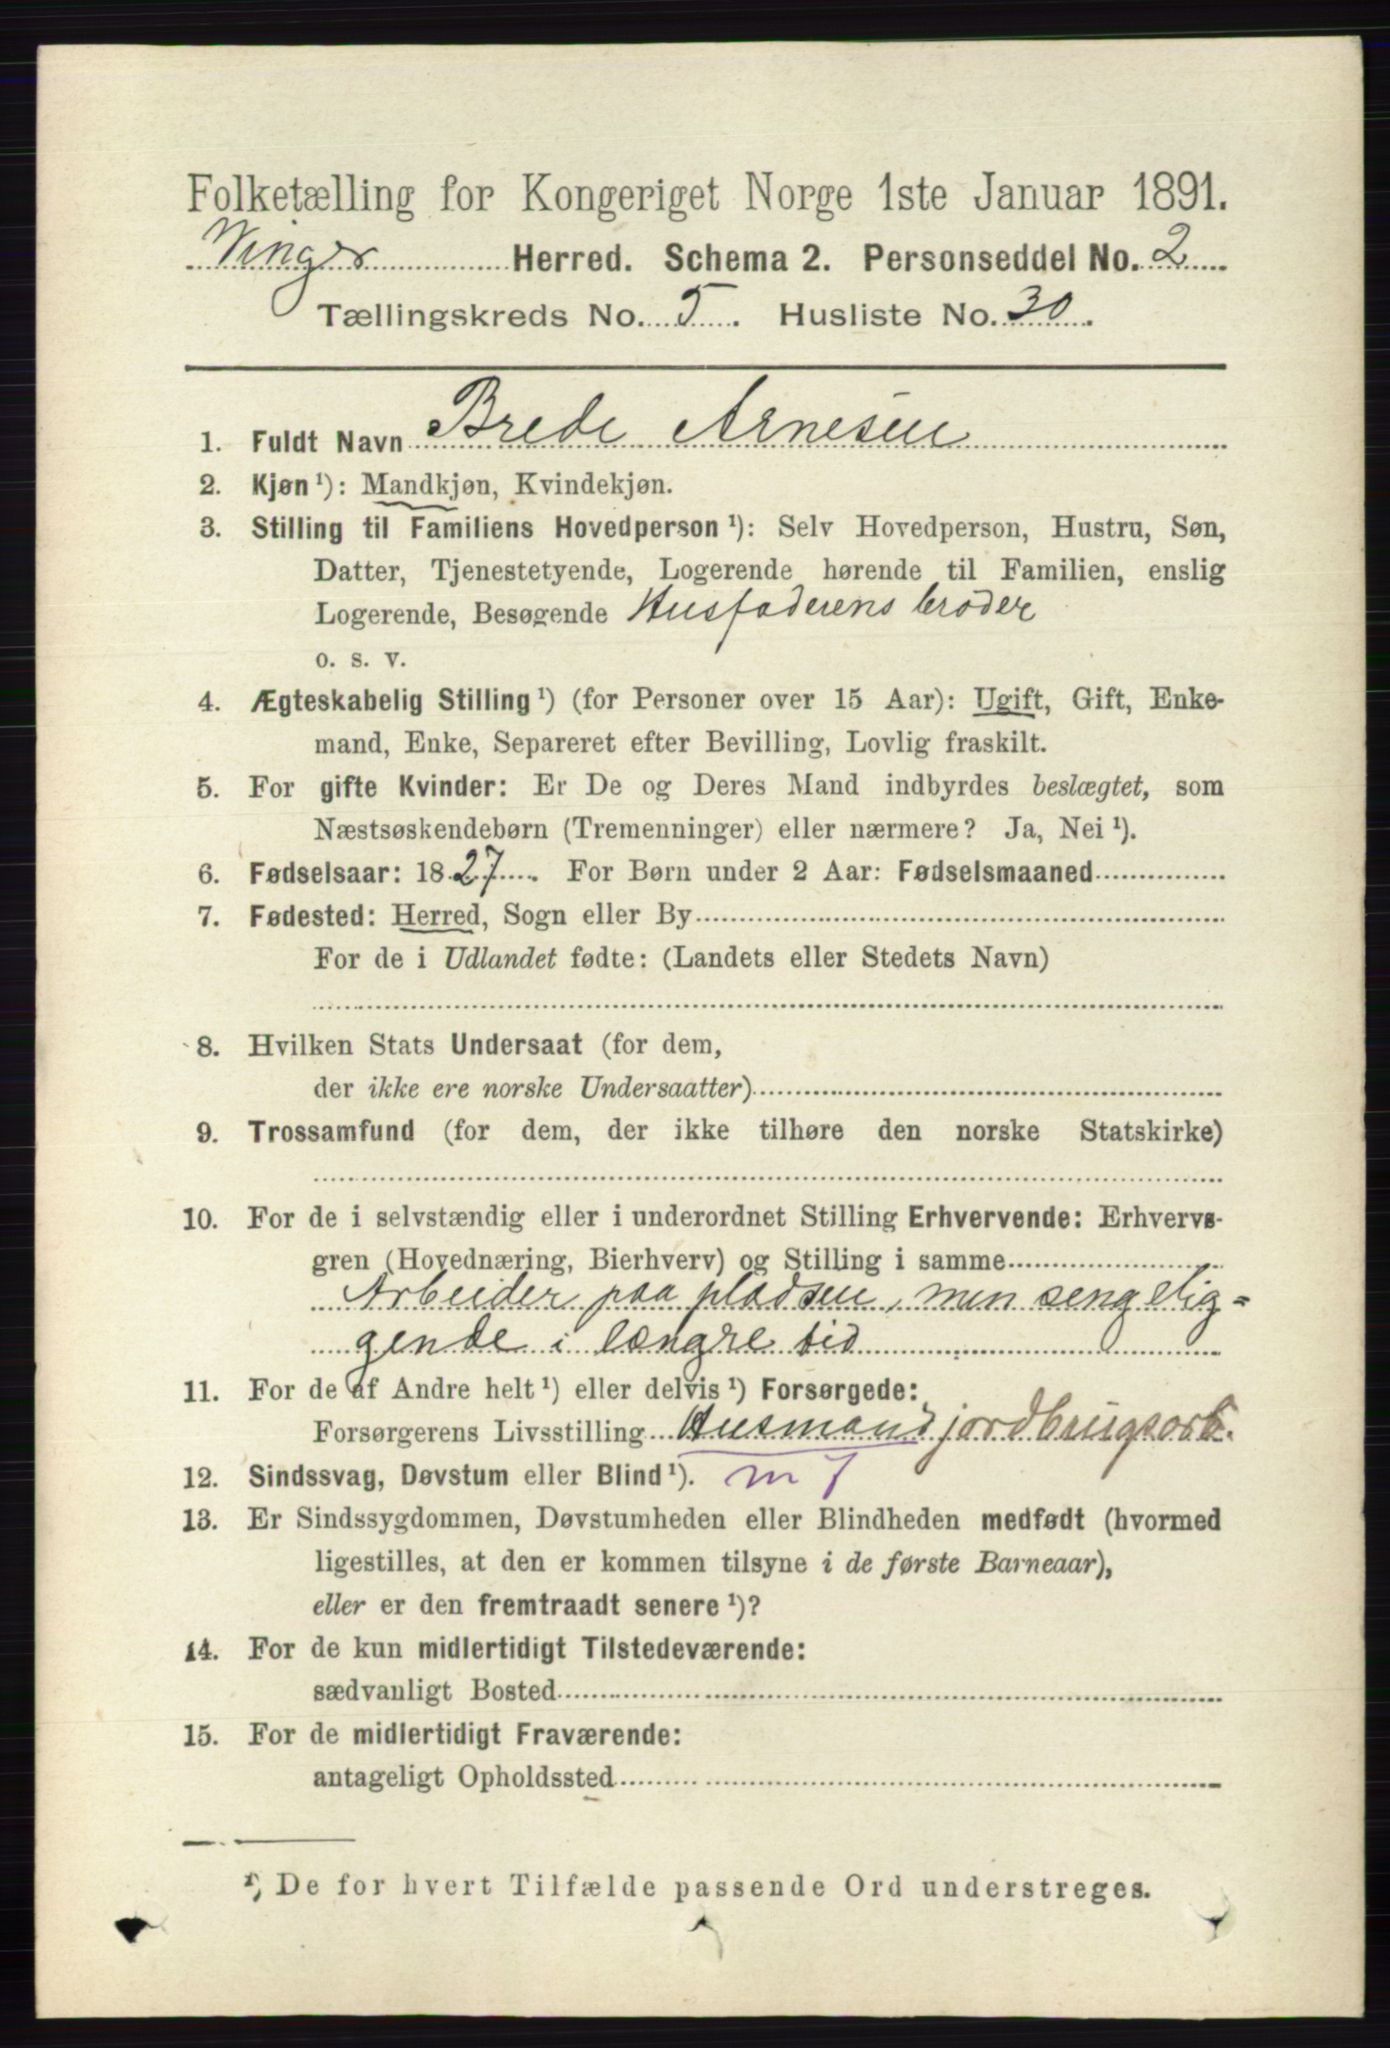 Folketælling for Kongeriget Norge 1ste Januar 1891.
Vinger Herred. Schema 2. Personseddel No. 2
Tællingskreds No. 5. Husliste No. 30.
1. Fuldt Navn Brede Arnesen
2. Kjøn ¹): Mandkjøn, Kvindekjøn.
3. Stilling til Familiens Hovedperson ¹): Selv Hovedperson, Hustru, Søn,
Datter, Tjenestetyende, Logerende hørende til Familien, enslig
Logerende, Besøgende Husfaderens broder
o. s. v.
4. Ægteskabelig Stilling ¹) (for Personer over 15 Aar): Ugift, Gift, Enke-
mand, Enke, Separeret efter Bevilling, Lovlig fraskilt.
5. For gifte Kvinder: Er De og Deres Mand indbyrdes beslægtet, som
Næstsøskendebørn (Tremenninger) eller nærmere? Ja, Nei ¹).
6. Fødselsaar: 1827. For Børn under 2 Aar: Fødselsmaaned
7. Fødested: Herred, Sogn eller By
For de i Udlandet fødte: (Landets eller Stedets Navn)
8. Hvilken Stats Undersaat (for dem,
der ikke ere norske Undersaatter)
9. Trossamfund (for dem, der ikke tilhøre den norske Statskirke)
10. For de i selvstændig eller i underordnet Stilling Erhvervende: Erhvervs-
gren (Hovednæring, Bierhverv) og Stilling i samme
Arbeider paa pladsen, men sengelig=
gende i længre tid
11. For de af Andre helt ¹) eller delvis ¹) Forsørgede:
Forsørgerens Livsstilling Husmand jordbrugsarb.
12. Sindssvag, Døvstum eller Blind ¹). m 7
13. Er Sindssygdommen, Døvstumheden eller Blindheden medfødt (hvormed
ligestilles, at den er kommen tilsyne i de første Barneaar),
eller er den fremtraadt senere ¹)?
14. For de kun midlertidigt Tilstedeværende:
sædvanligt Bosted
15. For de midlertidigt Fraværende:
antageligt Opholdssted
¹) De for hvert Tilfælde passende Ord understreges.